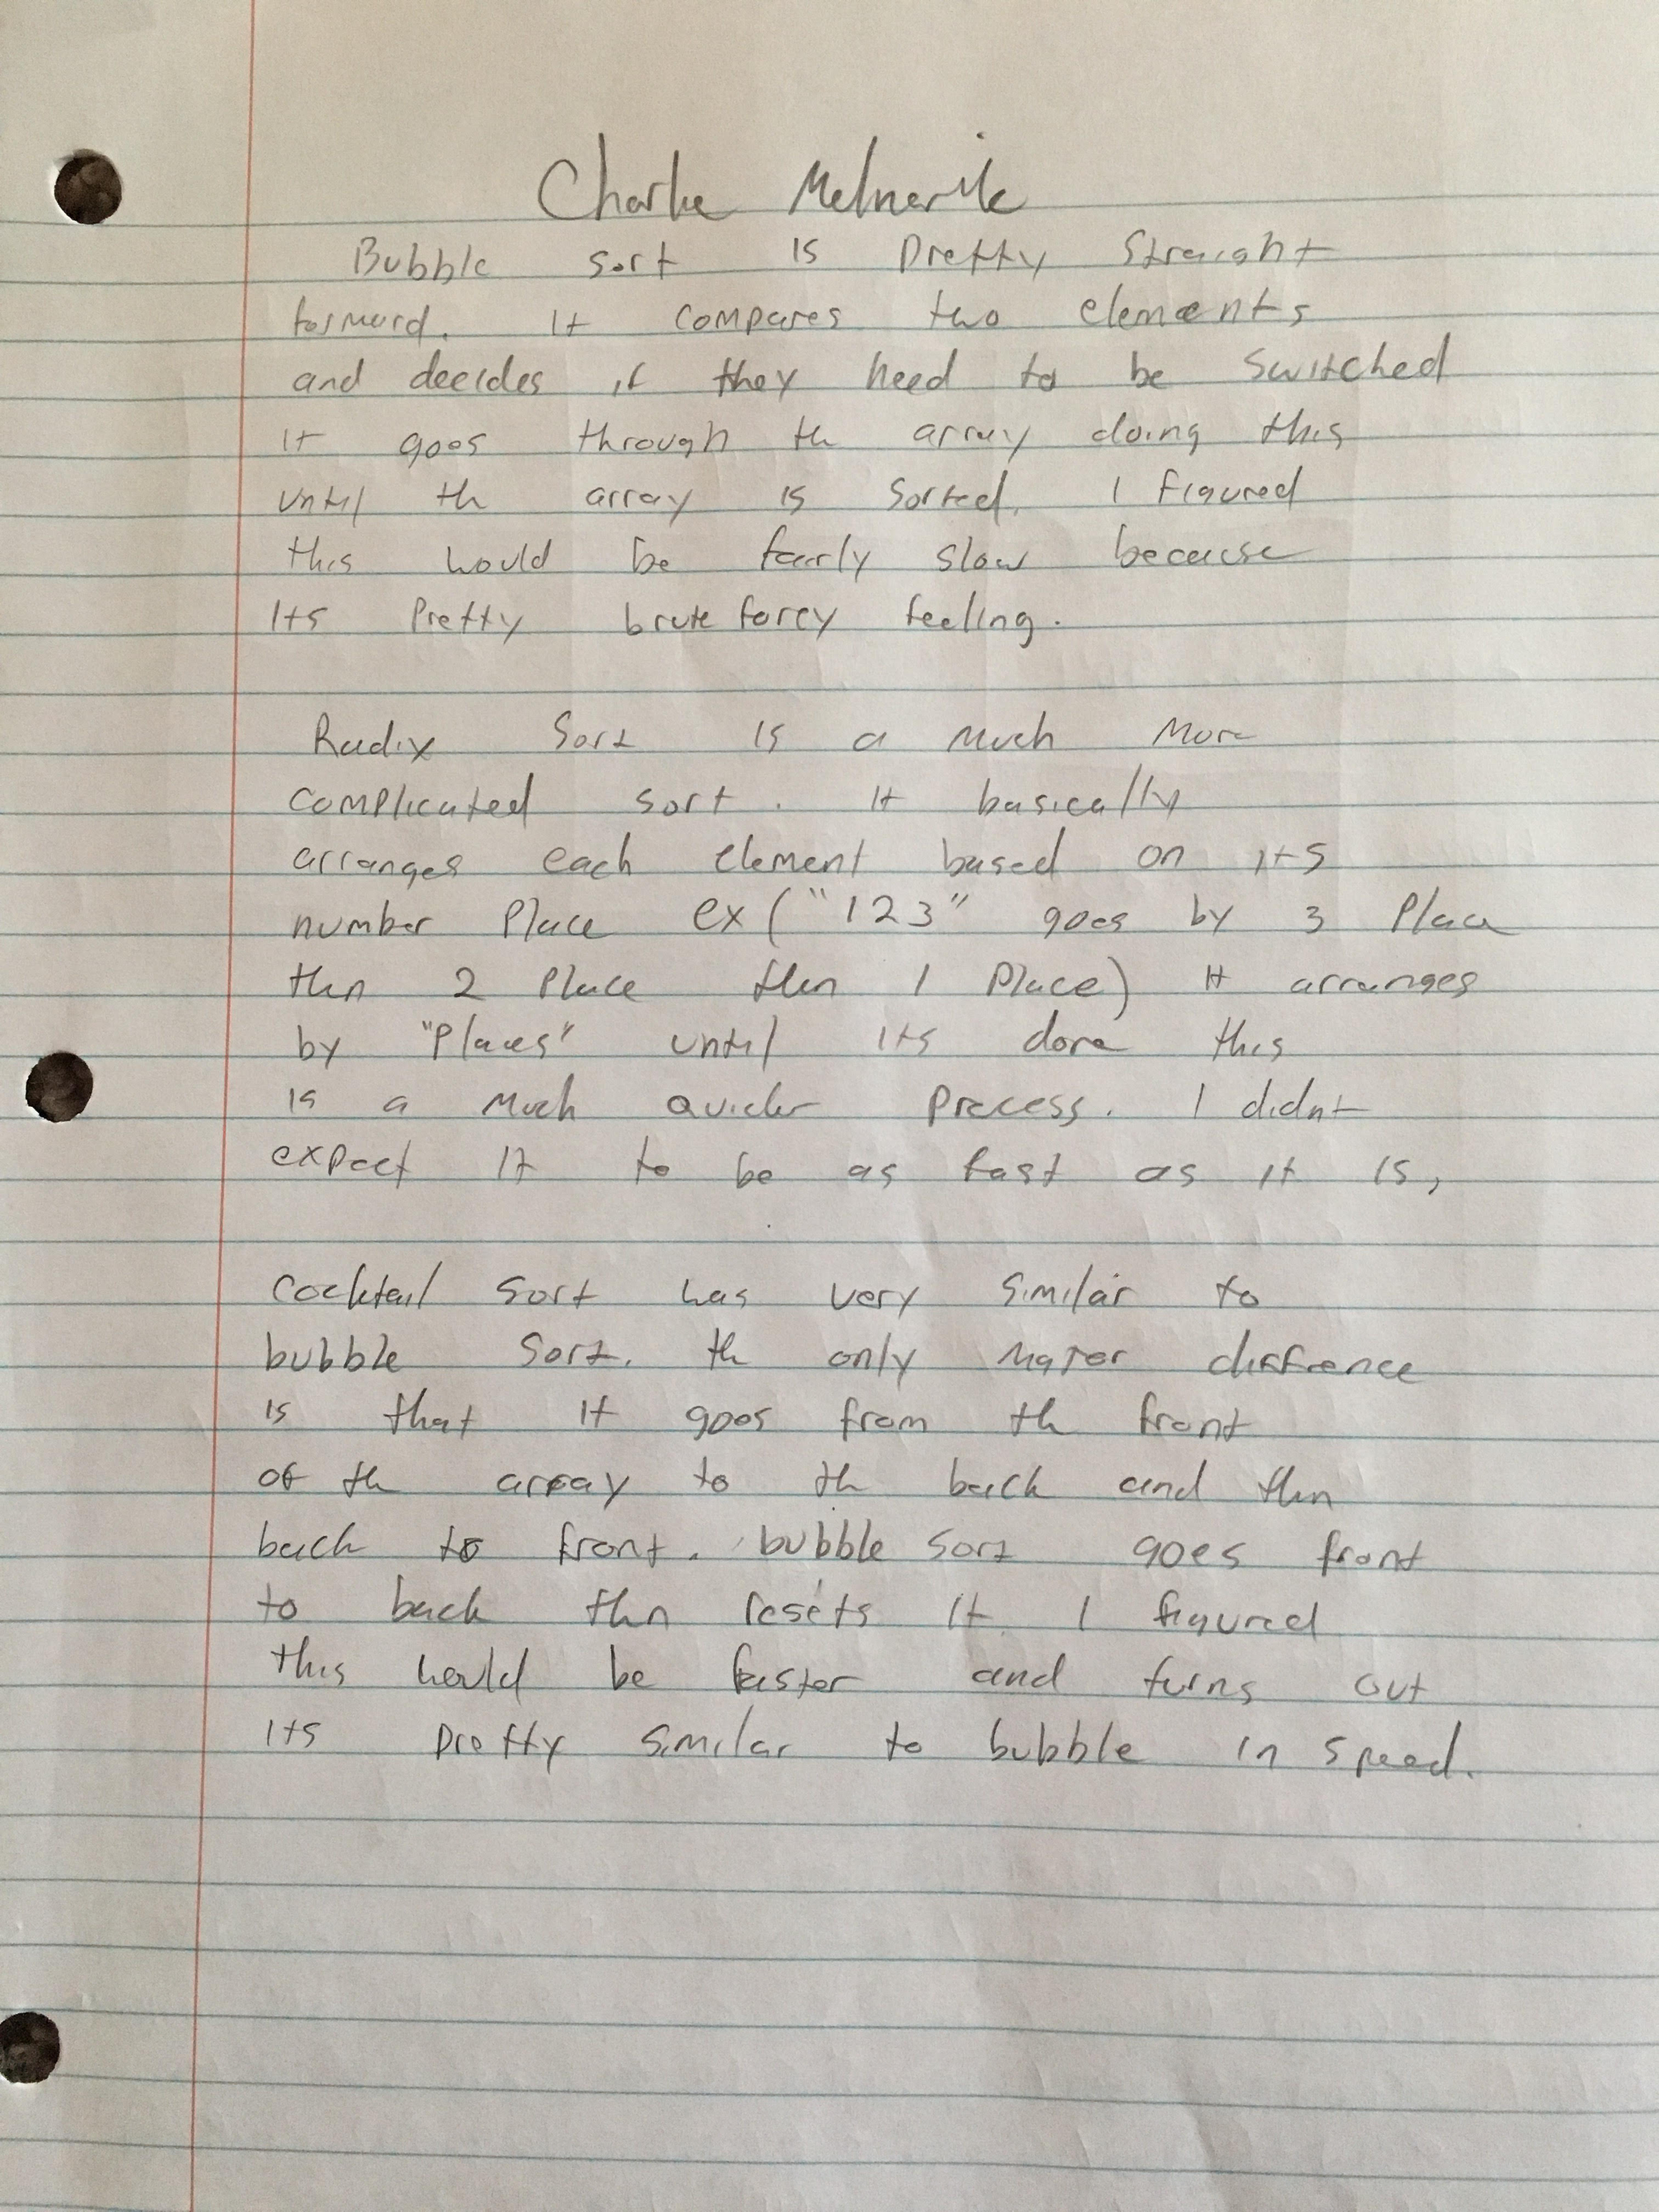 Charlie Melnarik
Bubble sort is Pretty Straight
forward. It compares two elements
and decides if they need to be switched
it goes through th array doing this
until th array is sorted. I figured
this would be fairly slow because
its Pretty brute forcy feeling.
Radix Sort is a much more
complicated sort. It basically
arranges each element based on its
number Place ex ("123" goes by 3 Place
then 2 Place then 1 Place) It arranges
by "Places" until its done this
is a much quicker Process. I didnt
expect it to be as fast as it is,
Cocktail sort was very similar to
bubble sort. th only major diffrence
is that it goes from th front
of th array to th back and then
back to front. bubble sort goes front
to back then resets it. I figured
this would be faster and turns out
its pretty similar to bubble in speed.